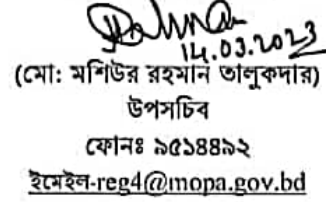 14.03.2023
(মো: মশিউর রহমান তালুকদার)
উপসচিব
ফোনঃ ৯৫১৪৪৯২
ইমেইল-reg4@mopa.gov.bd